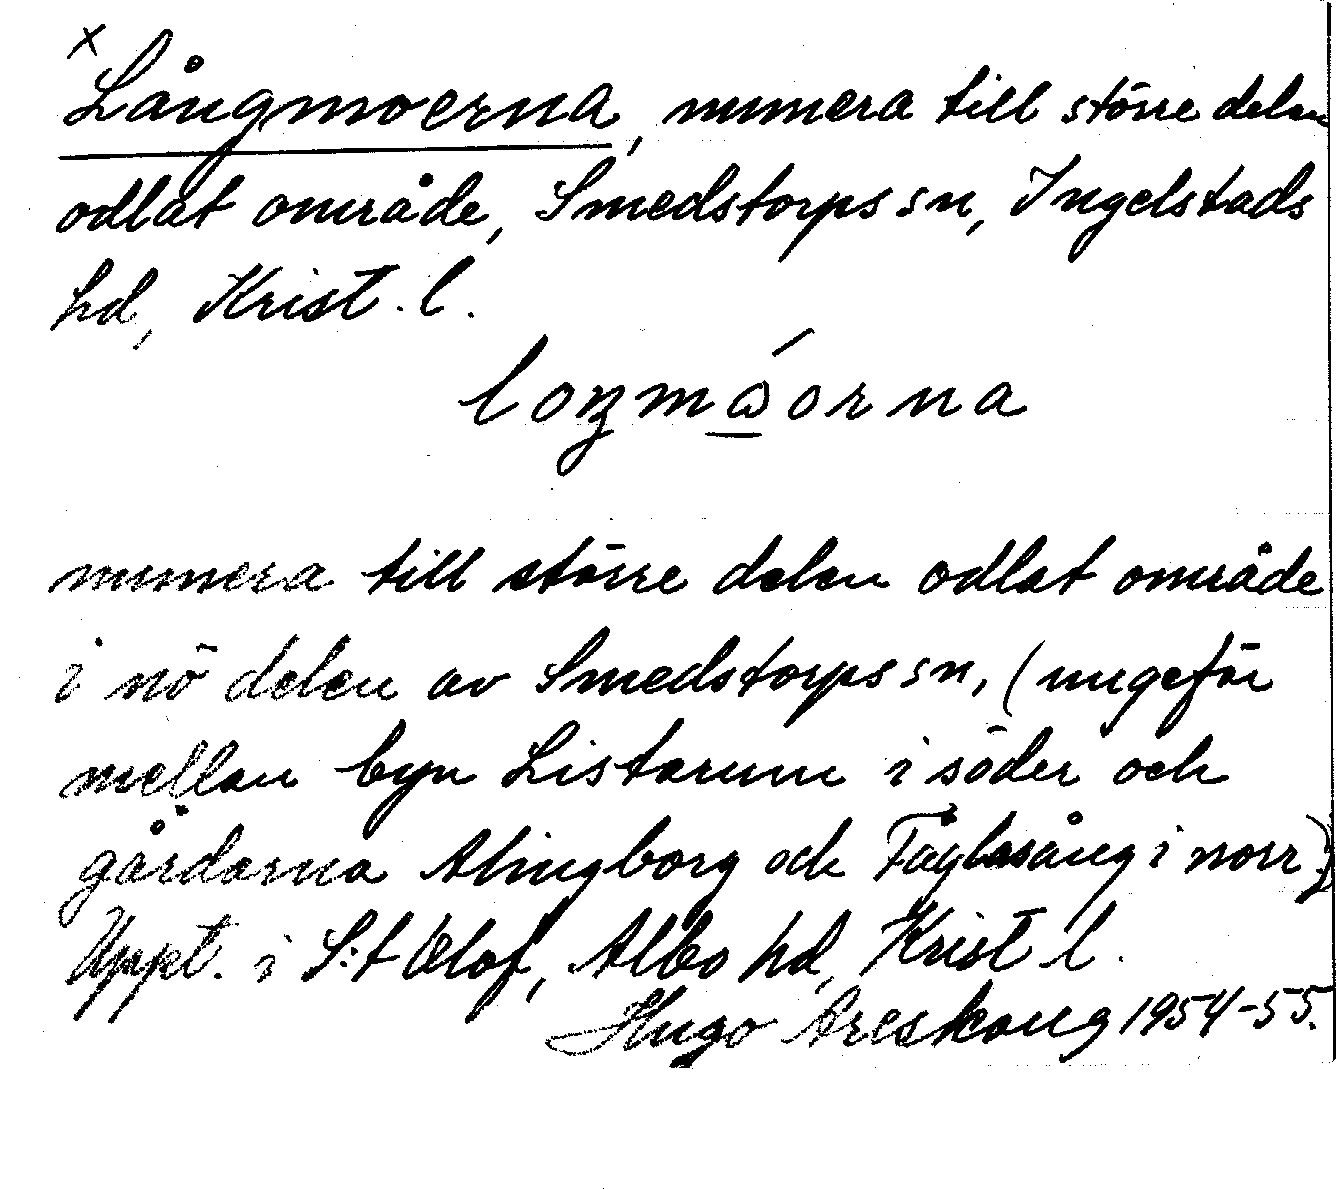 x
Långmoerna, numera till större delen
odlat område, Smedstorps sn, Ingelstads
hd, Krist. l.
numera till större delen odlat område
i nö delen av Smedstorps sn, (ungefär
mellan byn Listarum i söder och
gårdarna Alingborg och Fågelsång i norr)
Uppt. i S:t Olof, Albo hd, Krist l.
Hugo Areskoug 1954-55.